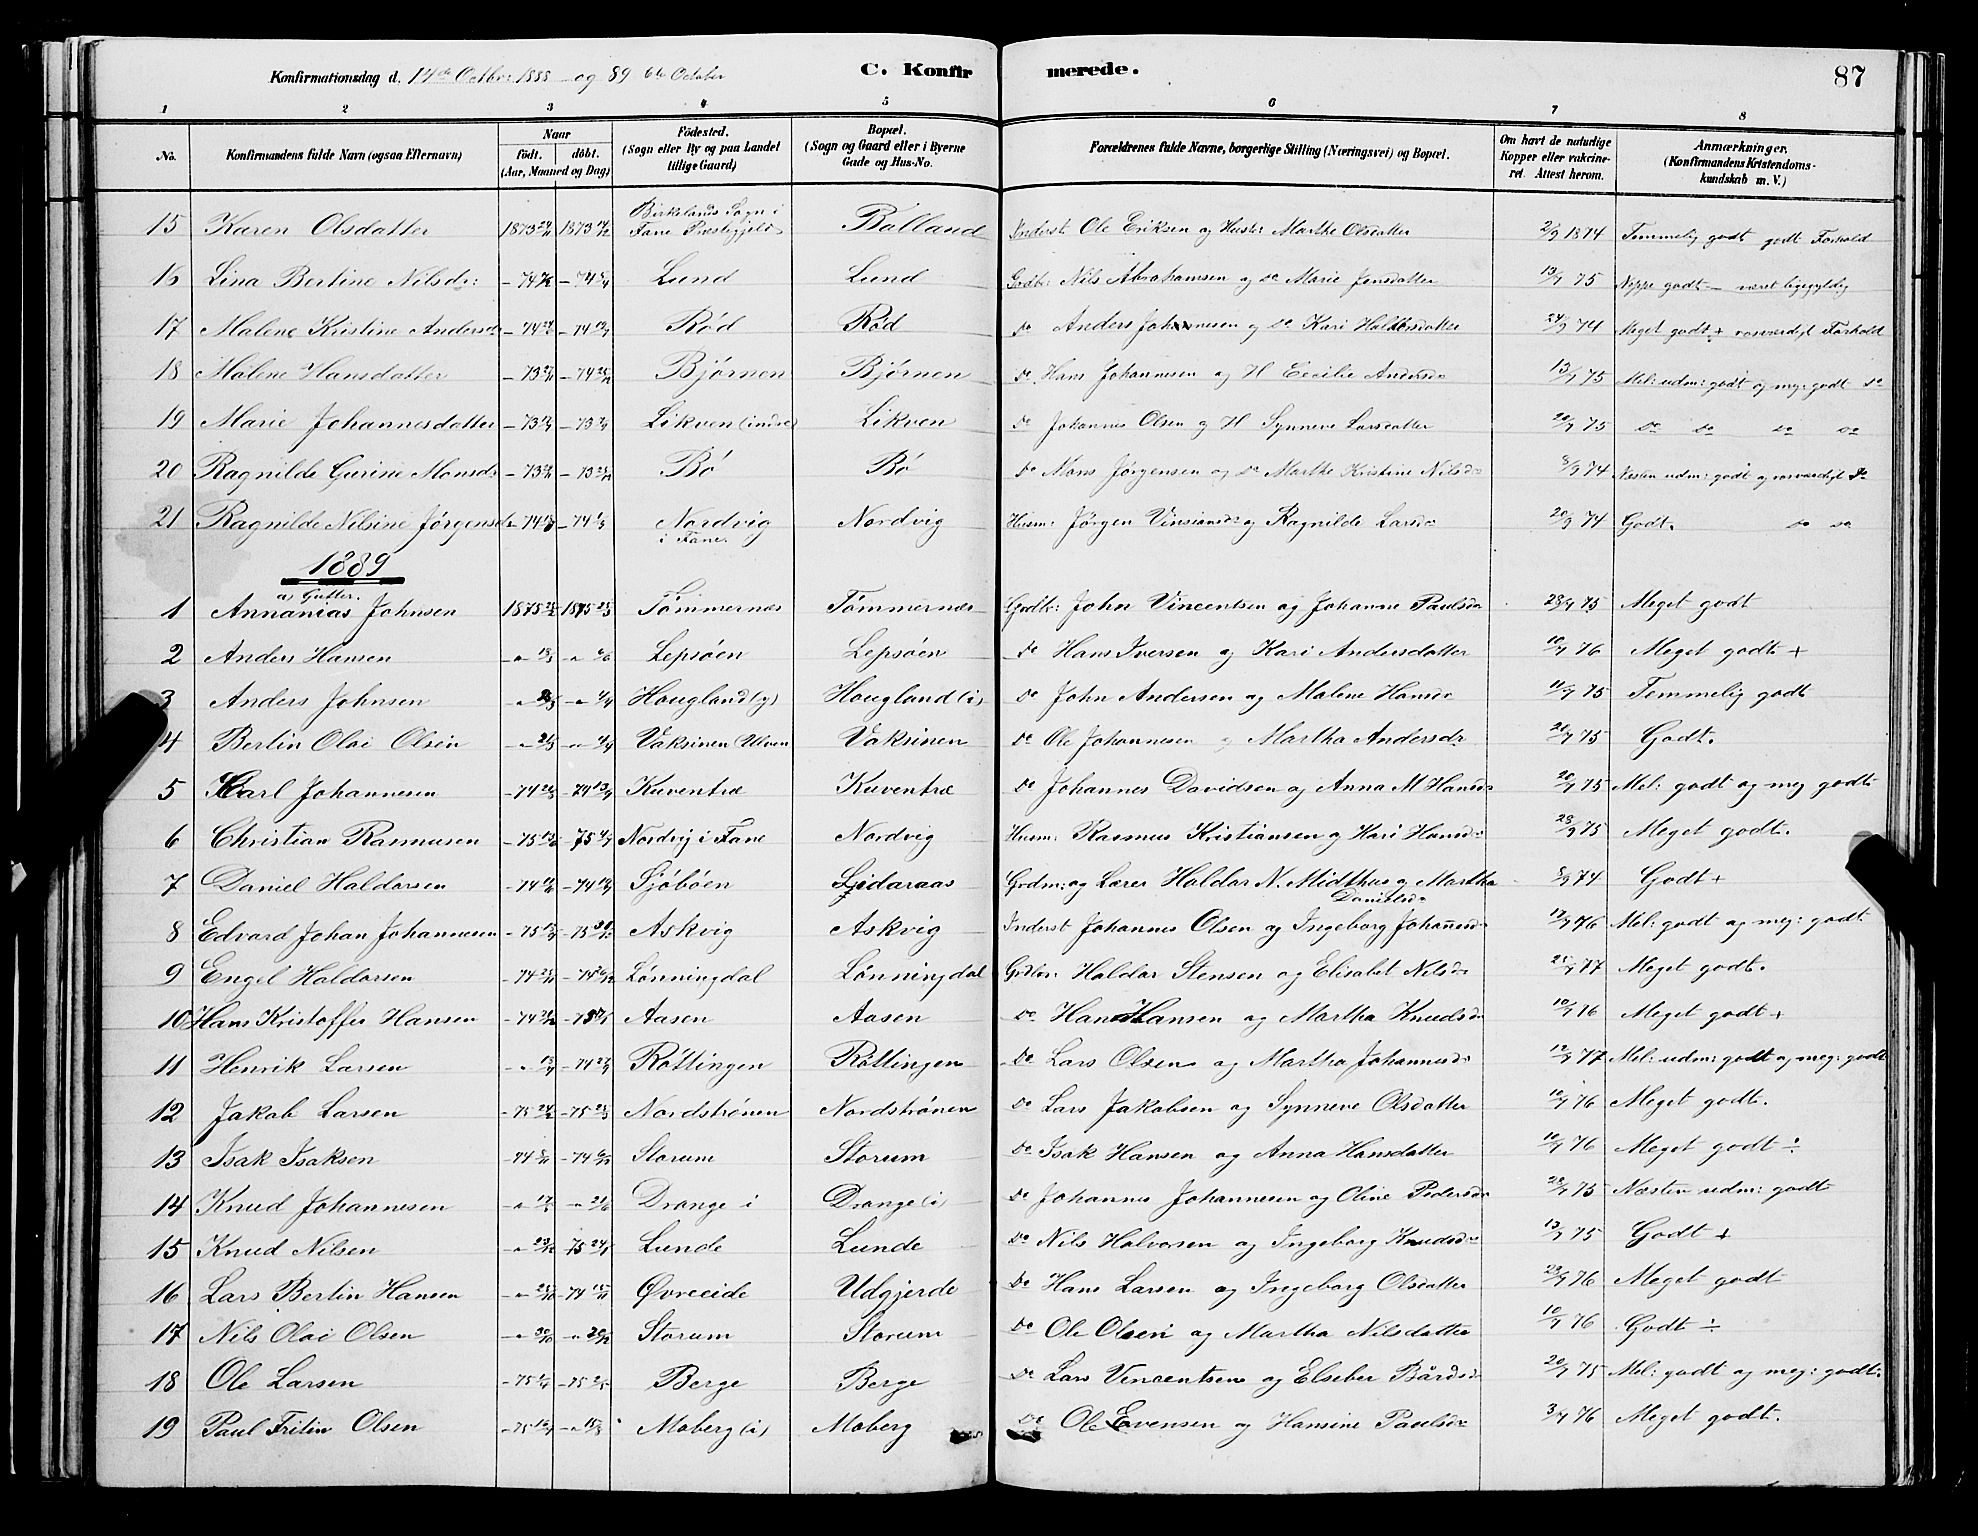 Konfirmationsdag d. 14de Octbr: 1888 og 89 6te October C. Konfirmerede. 87
1 2 3 4 5 6 7 8
No. Konfirmandens fulde Navn (ogsaa Efternavn) Naar födt. döbt. (Aar, Maaned og Dag) Födested. (Sogn eller By og paa Landet tillige Gaard) Bopæl. (Sogn og Gaard eller i Byerne Gade og Hus-No. Forældrenes fulde Navne, borgerlige Stilling (Næringsvei) og Bopæl. Om havt de naturlige Kopper eller vakcineret. Attest herom. Anmærkninger. (Konfirmandens Kristendomskundskab m. V.)
15 Karen Olsdatter 1873 1873 Birkelands Sogn i Fane Præstegjeld Balland Inderst Ole Eriksen og Hustr Marthe Olsdatter 2/9 1874 Temmelig godt godt Forhold
16 Lina Bertine Nilsdr: - 74 - 74 Lund Lund Gdbr: Nils Abrahamsen og do Marie Jensdatter 13/7 75 Neppe godt - været ligegyldig
17 Malene Kristine Andersd - 74 - 74 Rød Rød do Anders Johannesen og do Kari Haldorsdatter 24/9 74 Meget godt + rosværdigt Forhold
18 Malene Hansdatter - 73 - 74 Bjørnen Bjørnen do Hans Johannesen og H Cecilie Andersd 13/7 75 Mel: udm: godt og meg: godt do
19 Marie Johannesdatter - 73 - 73 Likven (indre) Likven do Johannes Olsen og H Synneve Larsdatter 20/7 75 do do do do
20 Ragnilde Gurine Monsdr - 73 - 73 Bø Bø do Mons Jørgensen og do Marthe Kristine Nilsd 8/9 74 Næsten udm: godt og rosværdigt do
21 Ragnilde Nilsine Jørgensd - 74 - 74 Nordvig i Fane. Nordvig Husm: Jørgen Vinsiansen og Ragnilde Larsd 20/9 74 Godt. do do
1889
a) Gutter.
1 Annanias Johnsen 1875 1875 Tømmernes Tømmernes Gdbr: John Vincentsen og Johanne Paulsd 28/9 75 Meget godt
2 Anders Hansen Lepsøen Lepsøen do Hans Iversen og Kari Andersdatter 10/7 76 Meget godt +
3 Anders Johnsen Hougland (y) Hougland (i) do John Andersen og Malene Hansd 11/7 75 Temmelig godt
4 Bertin Olai Olsen Vaksinen Ulven Vaksinen do Ole Johannesen og Martha Andersdr 20/7 75 Godt.
5 Karl Johannesen - 74 - 74 Kuventræ Kuventræ do Johannes Davidsen og Anna M Hansd 20/7 75 Mel: godt og meg godt
6 Christian Rasmusen - 75 - 75 Nordvig i Fane Nordvig Husm: Rasmus Kristiansen og Kari Hansd 23/9 75 Meget godt.
7 Daniel Haldorsen - 74 - 74 Sjøbøen Lidaraas Grdm: og Lærer Haldor N. Midthus og Martha Danielsd 8/9 74 Godt +
8 Edvard Johan Johannesen - 75 - 75 Askvig Askvig Inderst Johannes Olsen og Ingeborg Johannesd 12/7 76 Mel: godt og meg: godt
9 Engel Haldorsen - 74 - 74 Lønningdal Lønningdal Gdbr: Haldor Stensen og Elisabet Nilsd 21/7 77 Meget godt.
10 Hans Kristoffer Hansen - 74 - 75 Aasen Aasen do Hans Hansen og Martha Knudsd 10/7 76 Meget godt +
11 Henrik Larsen - 74 Røttingen Røttingen do Lars Olsen og Martha Johannesd 12/7 77 Mel: udm: godt og meg: godt
12 Jakob Larsen - 75 - 75 Nordstrønen Nordstrønen do Lars Jakobsen og Synneve Olsdatter 10/7 76 Meget godt.
13 Isak Isaksen - 74 - 74 Storum Storum do Isak Hansen og Anna Hansdatter 10/7 76 Meget godt ÷
14 Knud Johannesen Drange i Drange (i) do Johannes Johannesen og Oline Pedersd 20/7 75 Næsten udm: godt
15 Knud Nilsen 75 Lunde Lunde do Nils Halvorsen og Ingeborg Knudsd 13/7 75 Godt +
16 Lars Bertin Hansen - 74 Øvreeide Udgjerde do Hans Larsen og Ingeborg Olsdatter 29/9 76 Meget godt
17 Nils Olai Olsen Storum Storum do Ole Olsen og Martha Nilsdatter 10/7 76 Godt ÷
18 Ole Larsen - 75 - 75 Berge Berge do Lars Vincentsen og Elseber Bårdsd 20/7 75 Mel: godt og meg: godt.
19 Paul Fritin Olsen - 75 Moberg (i) Moberg do Ole Evensen og Hansine Paulsd 3/7 76 Meget godt.